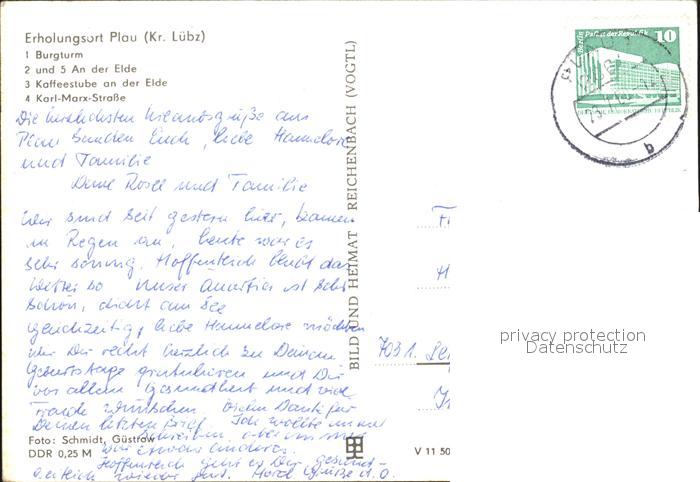 Erholungsort Plau (Kr. Lübz)
1 Burgturm
2 und 5 An der Elde
3 Kaffeestube an der Elde
4 Karl-Marx-Straße
Die herzlichsten Urlaubsgrüße aus
Plau senden Euch, liebe Hannelore
und Familie
Deine Rosel und Familie
Wir sind seit gestern hier, kamen
im Regen an, heute war es
sehr sonnig. Hoffentlich bleibt das
Wetter so. Unser Quartier ist sehr
schön, dicht am See
Gleichzeitig, liebe Hannelore möchten
wir Dir recht herzlich zu Deinem
Geburtstage gratulieren und Dir
vor allem Gesundheit und viel
Freude wünschen. Vielen Dank für
Deinen letzten Brief. Ich wollte immer
schreiben, aber
war etwas anderes.
Hoffentlich geht es Dir gesund-
heitlich wieder gut. Herzl. Grüße d. O.
Foto: Schmidt, Güstrow
DDR 0,25 M
BILD UND HEIMAT REICHENBACH (VOGTL)
V 11 50
Berlin Palast der Republik
10
b
7031
privacy protection
Datenschutz